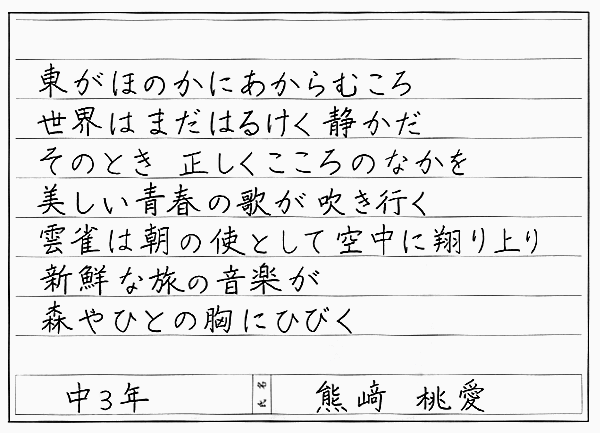 東がほのかにあからむころ
世界はまだはるけく静かだ
そのとき 正しくこころのなかを
美しい青春の歌が吹き行く
雲雀は朝の使として空中に翔り上り
新鮮な旅の音楽が
森やひとの胸にひびく
中3年 氏名 熊﨑 桃愛